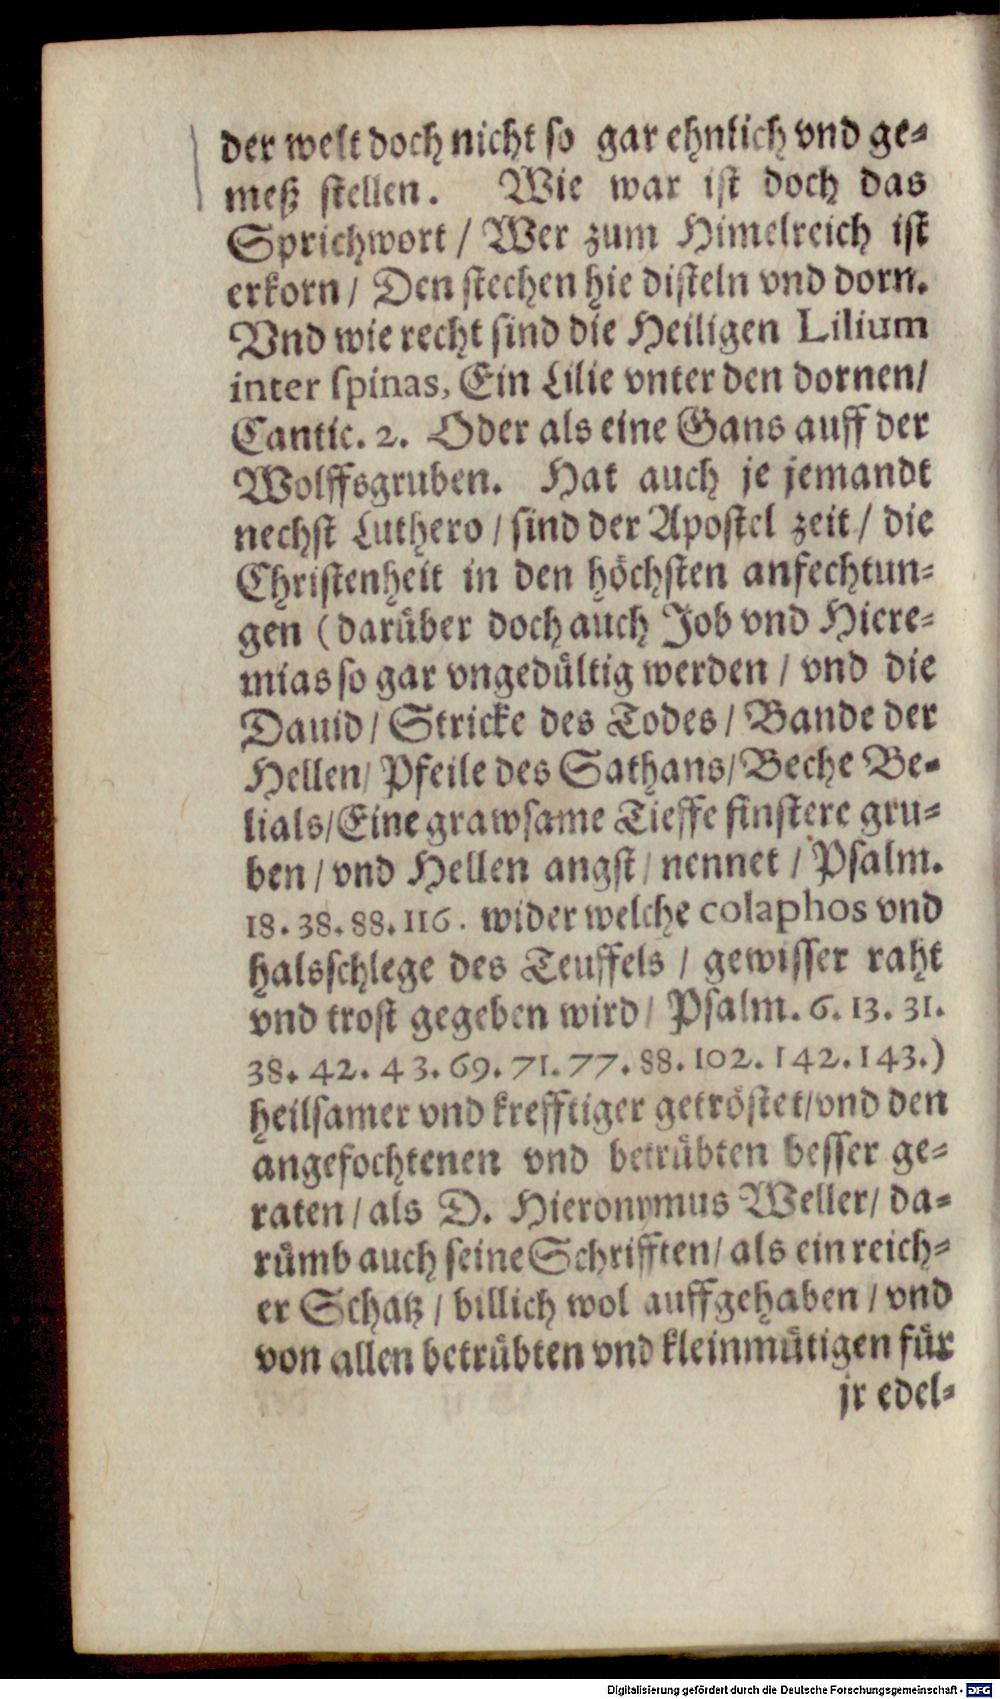 der welt doch nicht so gar ehnlich vnd ge-
meß stellen. Wie war ist doch das
Sprichwort / Wer zum Himelreich ist
erkorn / Den stechen hie disteln vnd dorn.
Vnd wie recht sind die Heiligen Lilium
inter spinas, Ein Lilie vnter den dornen/
Cantic. 2. Oder als eine Gans auff der
Wolffsgruben. Hat auch je jemandt
nechst Luthero / sind der Apostel zeit / die
Christenheit in den höchsten anfechtun-
gen (darüber doch auch Job vnd Hiere-
mias so gar vngedültig werden / vnd die
Dauid / Stricke des Todes / Bande der
Hellen / Pfeile des Sathans / Beche Be-
lials / Eine grawsame Tieffe finstere gru-
ben / vnd Hellen angst / nennet / Psalm.
18. 38. 88. 116. wider welche colaphos vnd
halsschlege des Teuffels / gewisser raht
vnd trost gegeben wird / Psalm. 6. 13. 31.
38. 42. 43. 69. 71. 77. 88. 102. 142. 143.)
heilsamer vnd krefftiger getröstet / vnd den
angefochtenen vnd betrübten besser ge-
raten / als D. Hieronymus Weller / da-
rümb auch seine Schrifften / als ein reich-
er Schatz / billich wol auffgehaben / vnd
von allen betrübten vnd kleinmütigen für
jr edel-
Digitalisierung gefördert durch die Deutsche Forschungsgemeinschaft - DFG